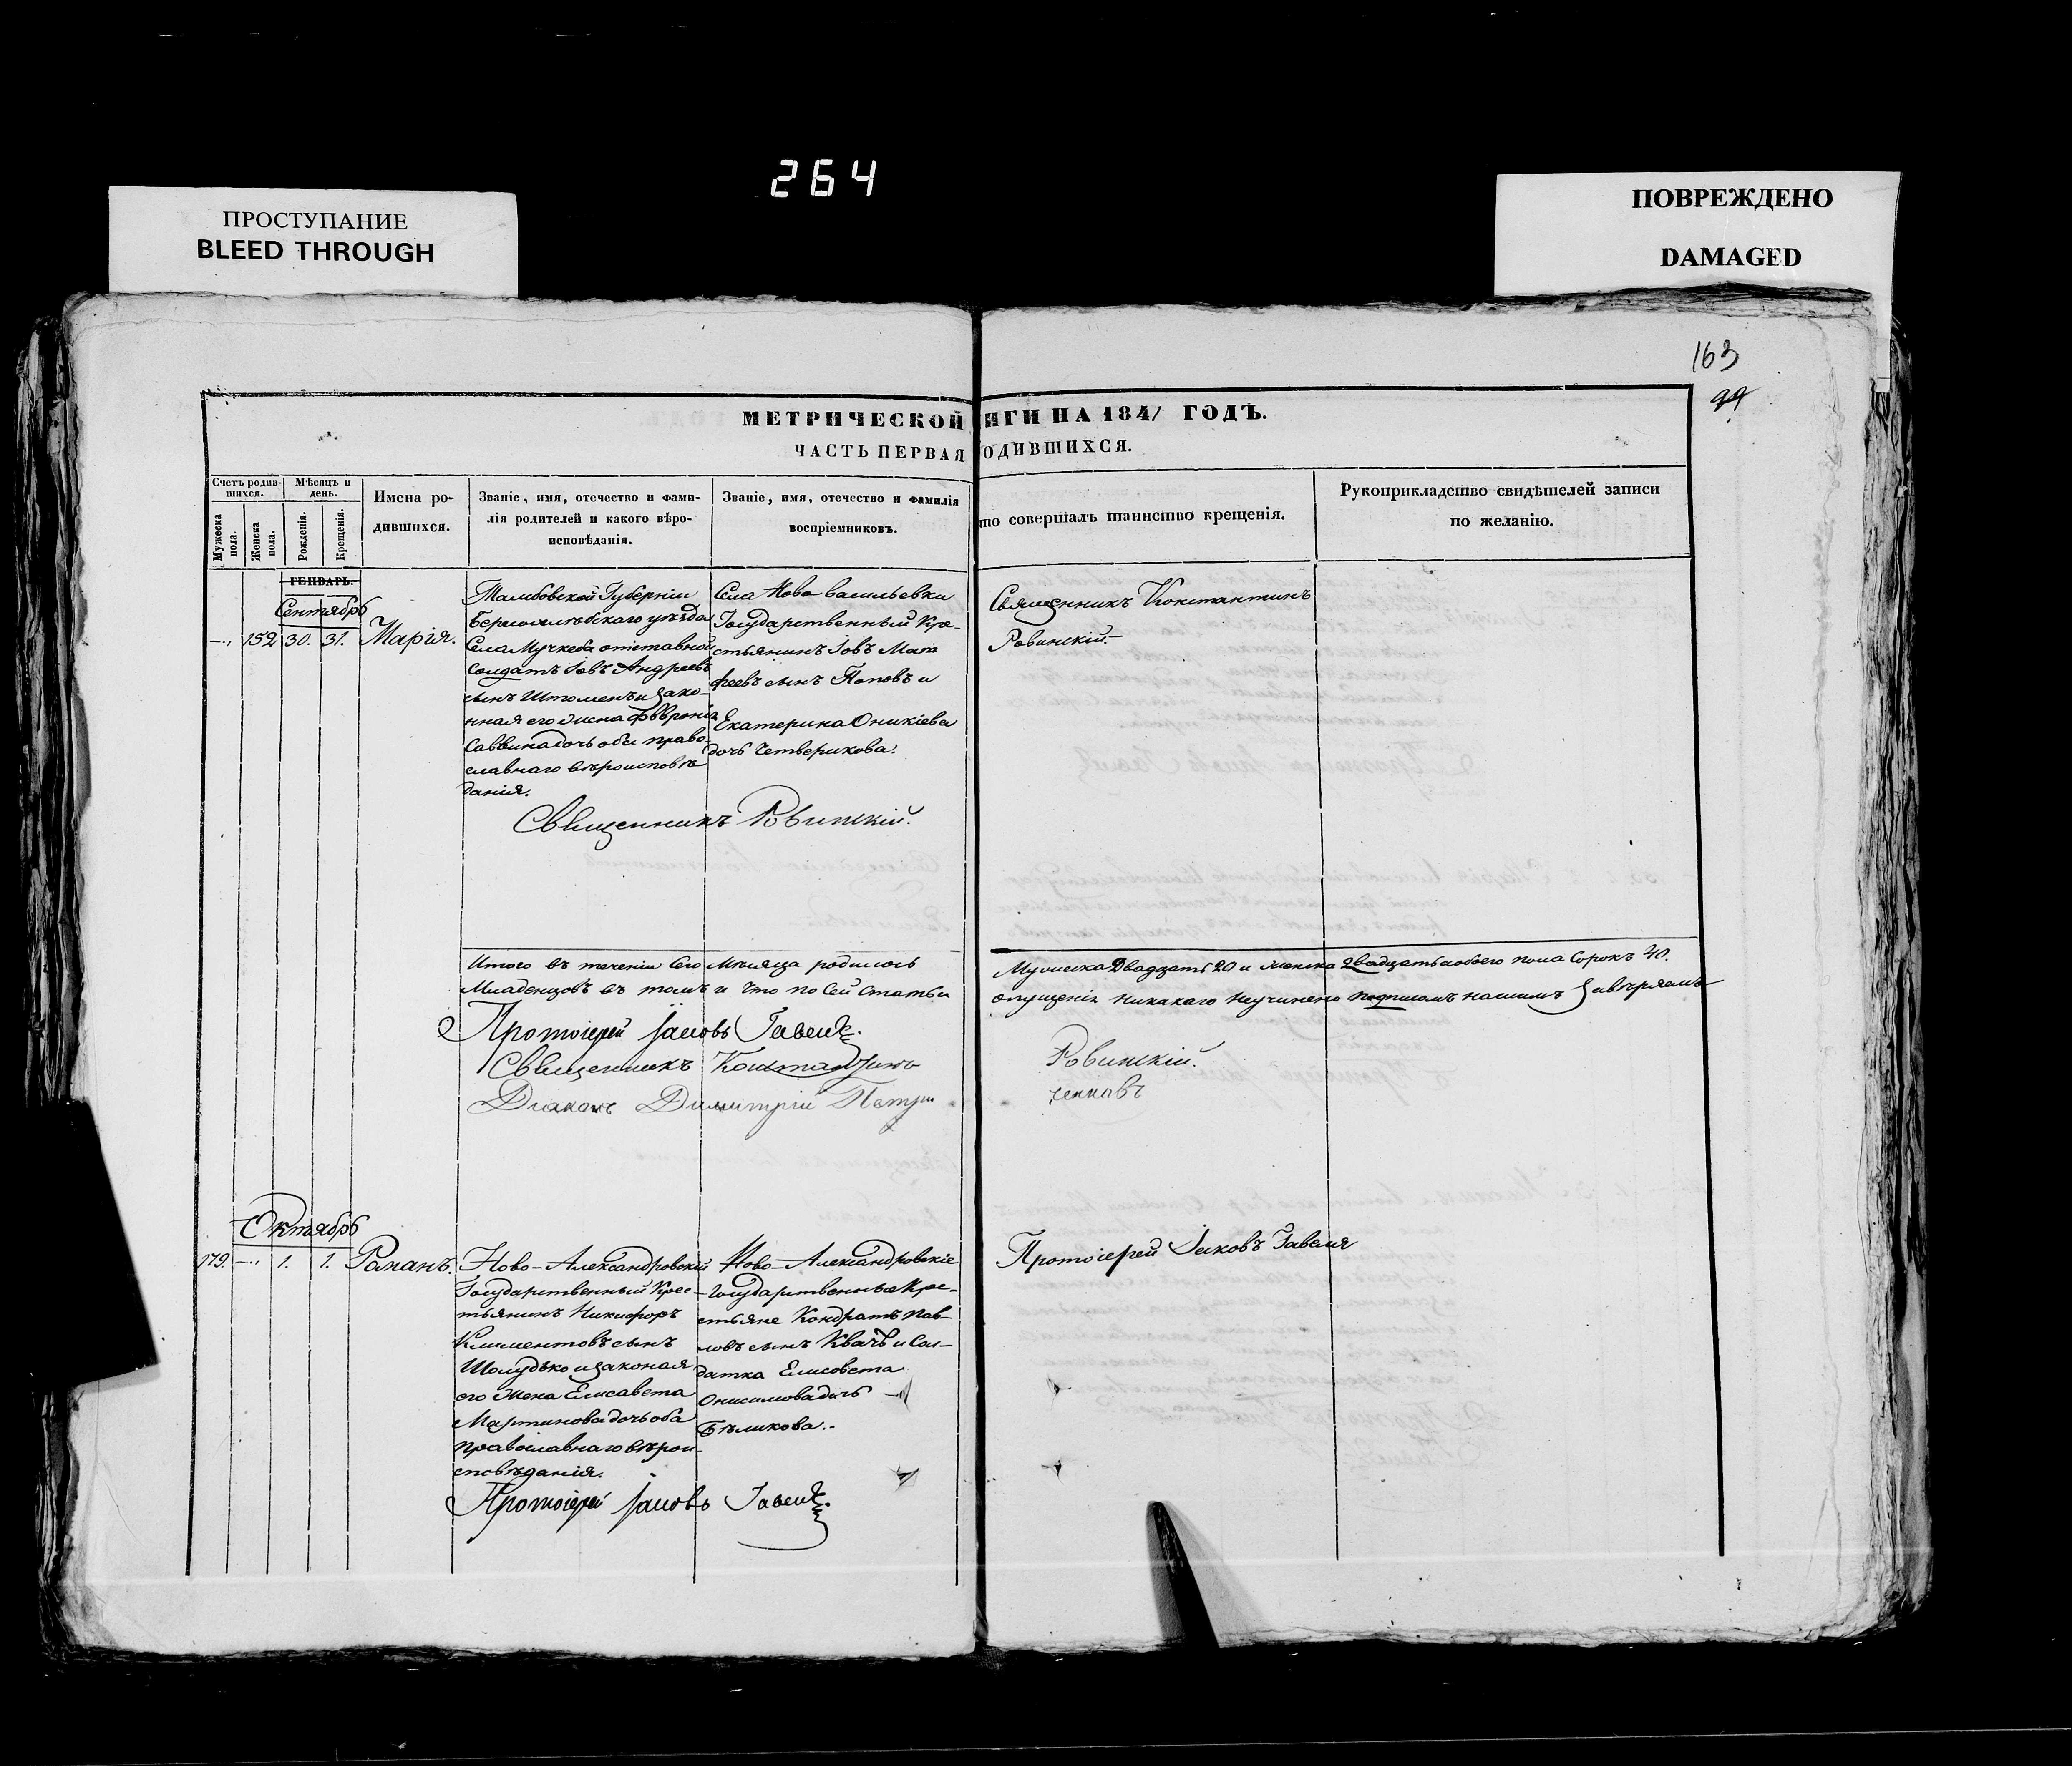 264
ПРОСТУПАНИЕ
BLEED THROUGH
ПОВРЕЖДЕНО
DAMAGED
163
МЕТРИЧЕСКОЙ ИГИ НА 1847 ГОДЪ.
ЧАСТЬ ПЕРВАЯ ОДИВШИХСЯ.
Счетъ родив-
шихся.
Мужеска
пола.
Женска
пола.
Мѣсяцъ и
день.
Рожденія.
Крещенія.
Имена ро-
дившихся.
Званіе, имя, отечество и фами-
лія родителей и какого вѣро-
исповѣданія.
Званіе, имя, отечество и фамилія
воспріемниковъ.
то совершалъ таинство крещенія.
Рукоприкладство свидѣтелей записи
по желанію.
ГЕНВАРЬ.
Сентябрь
152 30. 31. Марія.
Тамбовской Губерніи
уѣзда
Села Мучкеба отставной
Солдатъ Іовъ Андреевъ
сынъ и зако-
нная его жена Февронія
Саввина дочь оба право-
славнаго вѣроисповѣ
данія.
Села Ново васильевки
Государственный Кре-
стьянинъ Іовъ Мат
феевъ сынъ Поповъ и
Екатерина Оникіева
дочь Четверикова.
Священникъ Константинъ
Ровинскій.
Священникъ Ровинскій.
Итого въ теченіи Сего Мѣсяца родилось
Младенцовъ въ томъ и что по сей статьи
Мужеска Двадцать 20 и женска двадцать а обоего пола Сорокъ 40.
опущенія никакаго неучинено подписомъ нашимъ Завѣряемъ
Протоіерей Іаковъ
Священникъ Константинъ Ровинскій.
Діаконъ Димитрій
Октябрь
179. 1. 1. Романъ.
Ново-Александровскій
Государственный Крес-
тьянинъ Никифоръ
Климентовъ сынъ
Шолудько и законая
его жена Елисавета
Мартинова дочь оба
православнаго вѣрои-
сповѣданія.
Ново-Александровскіе
Государственные Кре-
стьяне Кондратъ Пав-
ловъ сынъ Квачъ и Сол-
датка Елисовета
Онисимова дочь
Бѣликова.
Протоіерей Іаковъ
Протоіерей Іаковъ